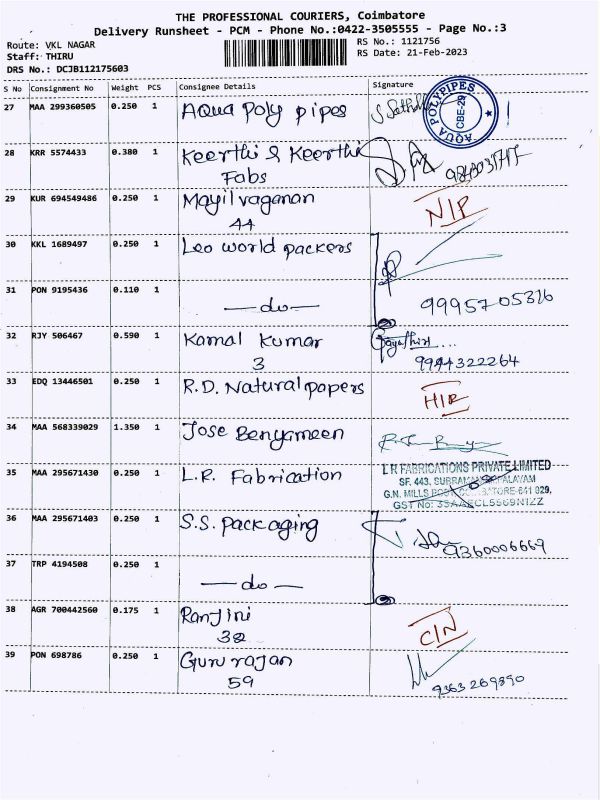 THE PROFESSIONAL COURIERS, Coimbatore
Delivery Runsheet - PCM - Phone No.:0422-3505555 - Page No.:3
Route: VKL NAGAR RS No.: 1121756
Staff: THIRU RS Date: 21-Feb-2023
DRS No.: DCJB112175603
S No Consignment No Weight PCS Consignee Details Signature
27 MAA 299360505 0.250 1 Aqua Poly pipes
AQUA POLYPIPES
CBE-29
28 KRR 5574433 0.380 1 Keerthi & Keerthi
Fabs
29 KUR 694549486 0.250 1 Mayilvaganan N/P
44
30 KKL 1689497 0.250 1 Leo world packers
31 PON 9195436 0.110 1 —do—
9995705326
32 RJY 506467 0.590 1 Kamal Kumar Gayathiri...
3 9944322264
33 EDQ 13446501 0.250 1 R.D. Natural papers
34 MAA 568339029 1.350 1 Jose Benyameen
35 MAA 295671430 0.250 1 L.R. Fabrication
L R FABRICATIONS PRIVATE LIMITED
SF. 443,
G.N. MILLS 641 029,
GST No:
36 MAA 295671403 0.250 1 S.S. packaging
9360006669
37 TRP 4194508 0.250 1 —do—
38 AGR 700442560 0.175 1 Ranjini
32 C/N
39 PON 698786 0.250 1 Gururajan
59 9363269890